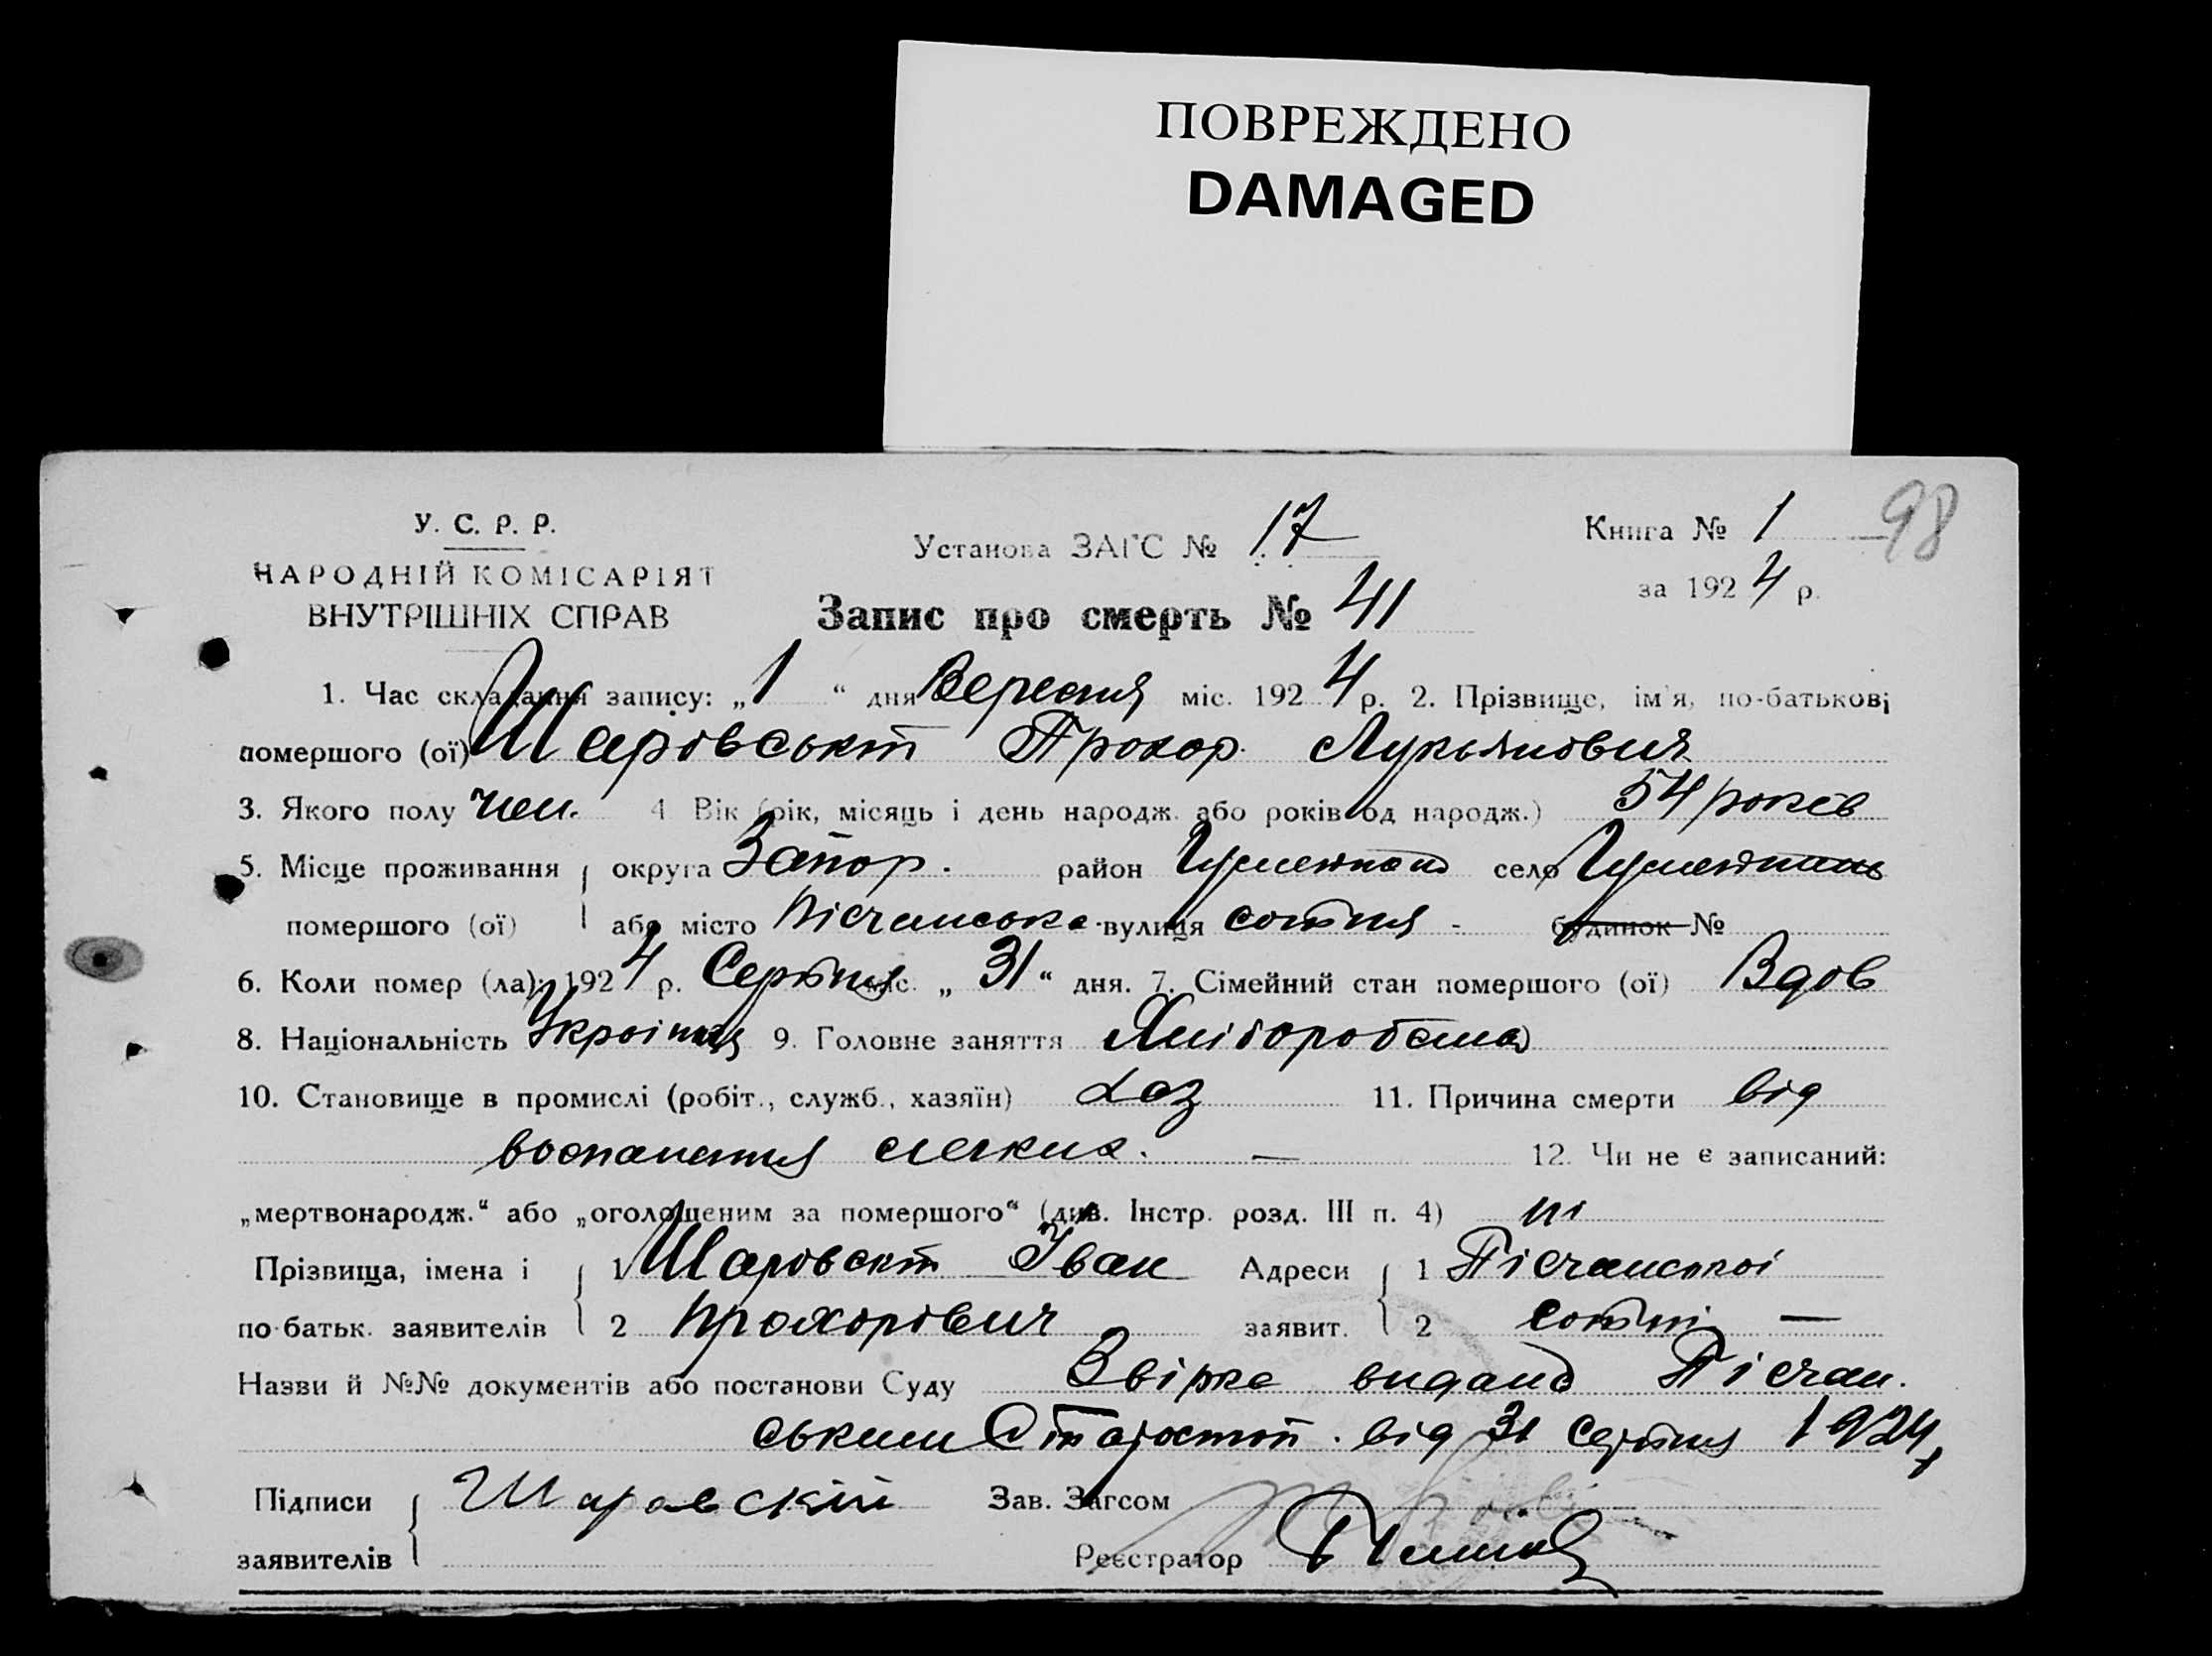 ПОВРЕЖДЕНО
DAMAGED
98
У. С. Р. Р.
НАРОДНІЙ КОМІСАРІЯТ
ВНУТРІШНІХ СПРАВ
Установа ЗАГС № 17
Книга № 1
за 1924 р.
Запис про смерть № 41
1. Час складання запису: „1“ дня Вересня міс. 1924 р. 2. Прізвище, ім'я, по-батькові
помершого (ої) Шаровськiй Прохор Лукьянович
3. Якого полу чол. 4 Вік (рік, місяць і день народж. або років од народж.) 54 років
5. Місце проживання округа Запор. район село
помершого (ої) або місто Пісчанська вулиця сотня - будинок №
6. Коли помер (ла): 1924 р. Серпня міс. „31“ дня. 7. Сімейний стан помершого (ої) Вдов
8. Національність 9. Головне заняття
10. Становище в промислі (робіт., служб., хазяїн) хаз 11. Причина смерти від
воспаления легких. — 12. Чи не є записаний:
„мертвонародж.“ або „оголошеним за помершого“ (див. Інстр. розд. III п. 4) ні
Прізвища, імена і 1 Шаровскiй Іван Адреси 1 Пісчанської
по-батьк. заявителів 2 Прохорович заявит. 2 сотні —
Назви й №№ документів або постанови Суду видано Пісчан.
ським від 31 Серпня 1924
Підписи Шаровскій Зав. Загсом
заявителів Реєстратор